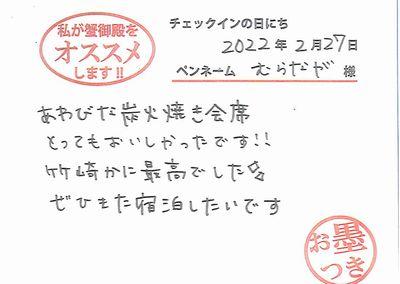 私が蟹御殿を
オススメ
します!!
チェックインの日にち
2022年2月27日
ペンネーム むらなが 様
あわびな炭火焼き会席
とってもおいしかったです!!
竹崎かに最高でした
ぜひまた宿泊したいです
お墨
つき